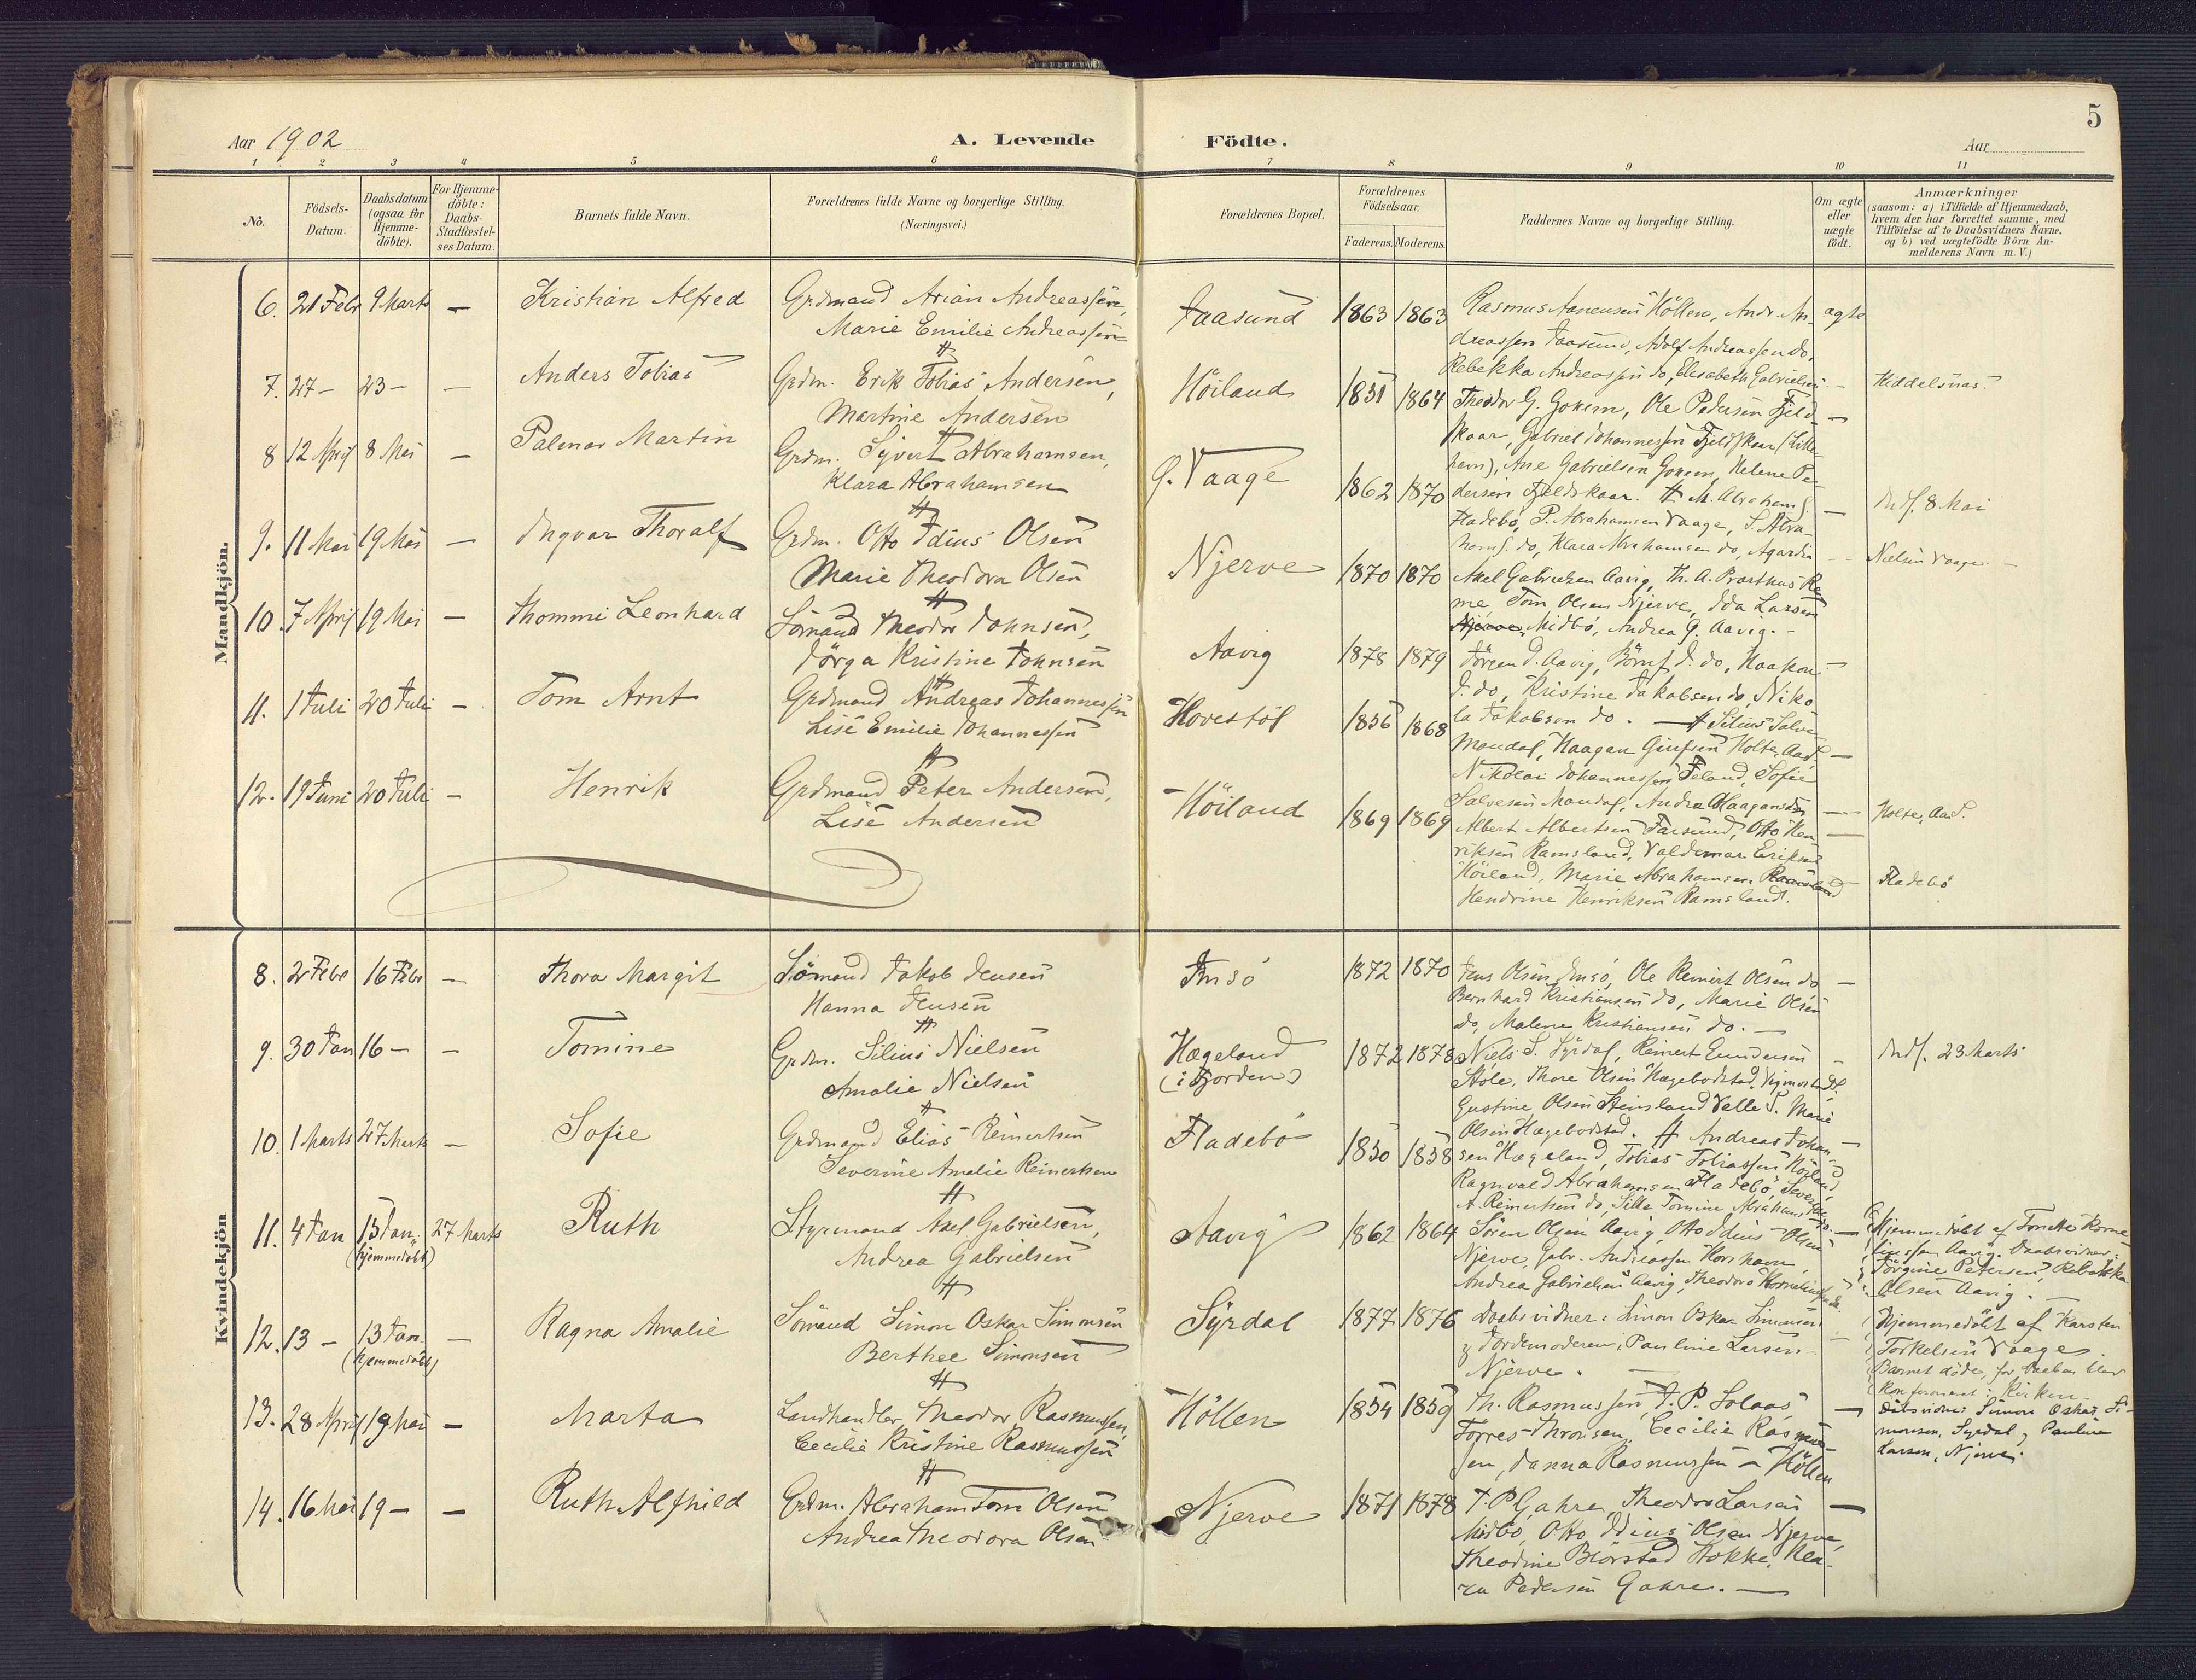 5
Aar 1902
A. Levende Födte.
Aar
1 2 3 4 5 6 7 8 9 10 11
No.
Födsels-
Datum.
Daabsdatum
(ogsaa for
Hjemme-
döbte).
For Hjemme-
döbte:
Daabs-
Stadfæstel-
ses Datum.
Barnets fulde Navn.
Forældrenes fulde Navne og borgerlige Stilling.
(Næringsvei.)
Forældrenes Bopæl.
Forældrenes
Födselsaar.
Faderens. Moderens.
Faddernes Navne og borgerlige Stilling.
Om ægte
eller
uægte
födt.
Anmærkninger
(saasom: a) i Tilfælde af Hjemmedaab,
hvem der har forrettet samme, med
Tilföielse af to Daabsvidners Navne.
og b) ved uægtefödte Börn An-
melderens Navn m. V.)
Mandkjön.
6. 21 Febr 9 Marts — Kristian Alfred
Grdmand Arian Andreassen,
Marie Emilie Andreassen
Jaasund 1863 1863
Rasmus Höllen, Andr. An-
dreassen Jaasund, Adolf Andreassen do,
Rebekka Andreassen do, Elisabeth Gabrielsen
ægte
7. 27 — 23 — — Anders Tobias
Grdm. Erik Tobias Andersen,
Martine Andersen
Höiland 1851 1864
Theodor G. Ole Pedersen Fjeld-
skaar, Gabriel Johannessen Fjeldskaar (Lille-
havn), Ane Gabrielsen Helene Pe-
dersen Fjeldskaar.
—
8 12 April 8 Mai — Palmar Martin
Grdm. Syvert Abrahamsen,
Klara Abrahamsen
G. Vaage 1862 1870
M. Abrahams.
Fladebö, P. Abrahamsen Vaage, S. Abra-
hams. do, Klara Abrahamsen do,
— Indf. 8 Mai
Nielsen Vaage —
9. 11 Mai 19 Mai — Ingvar Thoralf
Grdm. Otto Idius Olsen
Marie Theodora Olsen
Njerve 1870 1870
Axel Gabrielsen Aavig, Th. A.
Tom Olsen Njerve, Ida Larsen
Midbö, Andrea G. Aavig. —
10. 7 April 19 Mai — Thommi Leonhard
Sömand Theodor Johnsen,
Jörga Kristine Johnsen
Aavig 1878 1879
Jörgen J. Aavig, J. do, Haakon
J. do, Kristine Jakobsen do, Niko-
la Jakobsen do. —
11. 1 Juli 20 Juli — Tom Arnt
Grdmand Andreas Johannessen
Lise Emilie Johannessen
Hovestöl 1856 1868
Silius
Mandal, Haagan Holte,
Nikolai Johannessen Sofie
Salvesen Mandal, Andrea Haagansdr
— Holte,
12. 19 Juni 20 Juli — Henrik
Grdmand Peter Andersen,
Lise Andersen
Höiland 1869 1869
Albert Albertsen Farsund, Otto Hen-
riksen Ramsland, Valdemar Eriksen
Höiland, Marie Abrahamsen
Hendrine Henriksen Ramsland.
Fladebö
Kvindekjön
8. 2 Febr 16 Febr — Thora Margit
Sömand Jakob Jensen
Hanna Jensen
Imsö 1872 1870
Jens Olsen Imsö, Ole Reinert Olsen do
Bernhard Kristiansen do, Marie Olsen
do, Malene Kristiansen do. —
—
9. 30 Jan 16 — — Tomine
Grdm. Silius Nielsen
Amalie Nielsen
Hægeland
(i Fjorden)
1872 1878
Niels S. Syrdal, Reinert Gundersen
Stöle, Thore Olsen Hægebostad.
Gustine Olsen Stensland Valle S. Marie
Olsen Hægebostad.
— Indf. 23 Marts
10. 1 Marts 27 Marts — Sofie
Grdmand Elias Reinertsen
Severine Amalie Reinertsen
Fladebö 1850 1858
Andreas Johan-
sen Hægeland, Tobias Tobiassen Höiland,
Ragnvald Abrahamsen Fladebö, Severine
A. Reinertsen do, Silla Tomine Abrahams. do.
—
11. 4 Jan 15 Jan.
(hjemmedöbt)
27 Marts Ruth
Styrmand Axel Gabrielsen,
Andrea Gabrielsen
Aavig 1862 1864
Sören Olsen Aavig, Otto Idius Olsen
Njerve, Gabr. Andreassen
Andrea Gabrielsen Aavig, Theodora
Hjemmedöbt af Korne-
liussen Aavig. Daabsvidner:
Jörgine Petersen, Rebekka
Olsen Aavig. —
12. 13 — 13 Jan.
(hjemmedöbt)
— Ragna Amalie
Sömand Simon Oskar Simonsen
Berthee Simonsen
Syrdal 1877 1876
Daabsvidner: Simon Oskar Simonsen
& Jordemoderen, Pauline Larsen
Njerve. —
Hjemmedöbt af Karsten
Torkelsen Vaage.
Barnet döde, för Daaben blev
Konfirmeret i Kirken.
Simon Oskar Si-
monsen, Syrdal, Pauline
Larsen, Njerve.
13. 28 April 19 Mai — Marta
Landhandler Theodor Rasmussen,
Cecilie Kristine Rasmussen
Höllen 1854 1859
Th. Rasmussen, J. P. Solaas
Torres Thronsen, Cecilie Rasmus-
sen, Janna Rasmussen — Höllen
—
14. 16 Mai 19 — — Ruth Alfhild
Grdm. Abraham Tom Olsen
Andrea Theodora Olsen
Njerve 1871 1878
T. P. Gahre, Theodor Larsen
Midbö, Otto Idius Olsen Njerve,
Theodine Björstad Stokke, Kla-
ra Pedersen Gahre. —
—